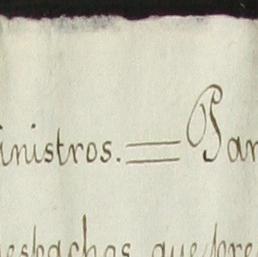 inistros. = Par
despachos que pre